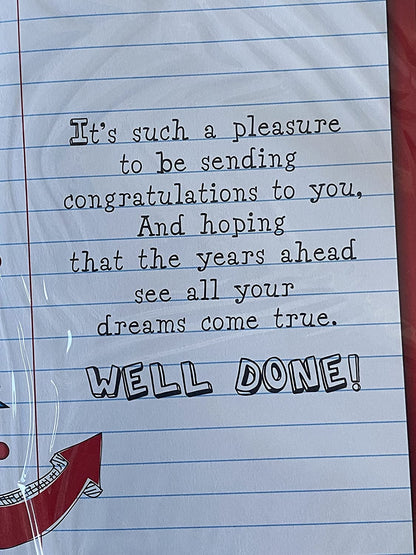 It's such a pleasure
to be sending
congratulations to you,
And hoping
that the years ahead
see all your
dreams come true.
WELL DONE!